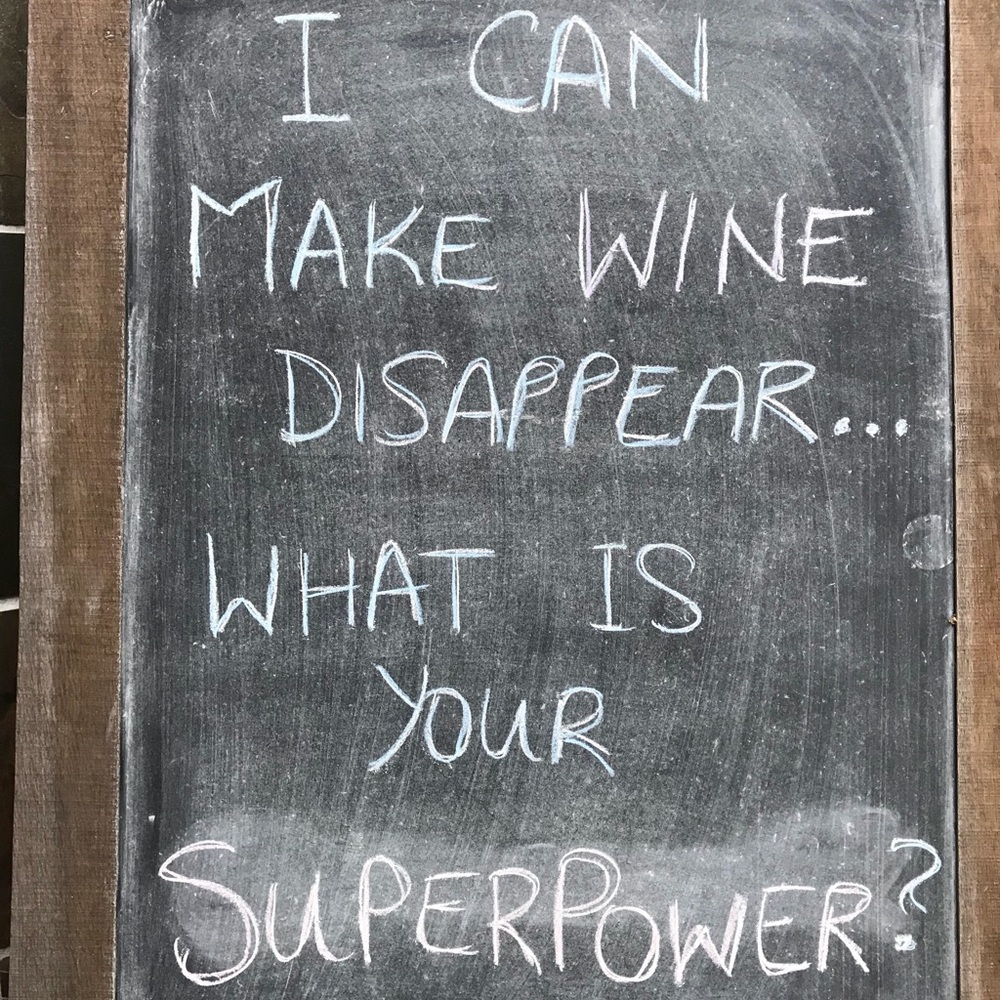 I CAN
MAKE WINE
DISAPPEAR...
WHAT IS
YOUR
SUPERPOWER?